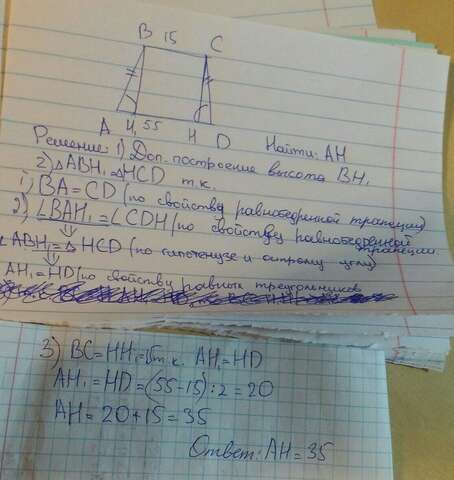 B 15 C
A H₁ 55 H D Найти: AH
Решение: 1) Доп. построение высота BH₁
2) △ABH₁ = △HCD т.к.
1) BA = CD (по свойству равнобедренной трапеции)
2) ∠BAH₁ = ∠CDH (по свойству равнобедренной трапеции.
⇓
△ABH₁ = △HCD (по гипотенузе и острому углу)
⇓
AH₁ = HD (по свойству равных треугольников
3) BC = HH₁ = 15 т.к. AH₁ = HD
AH₁ = HD = (55 - 15) : 2 = 20
AH = 20 + 15 = 35
Ответ: AH = 35